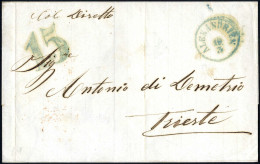 Col Diretto
ALEXANDRIEN
15
Sig.
Antonio di Demetrio
Trieste